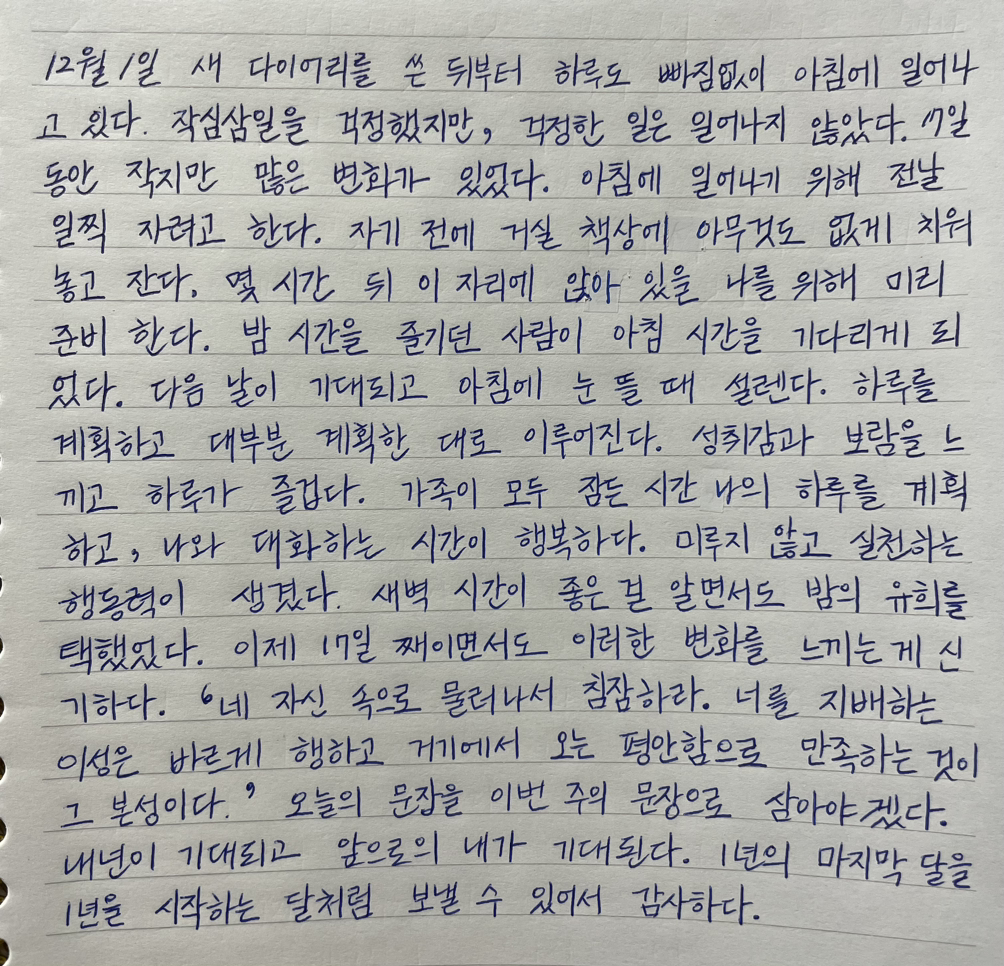 12월 1일 새 다이어리를 쓴 뒤부터 하루도 빠짐없이 아침에 일어나
고 있다. 작심삼일을 걱정했지만, 걱정한 일은 일어나지 않았다. 17일
동안 작지만 많은 변화가 있었다. 아침에 일어나기 위해 전날
일찍 자려고 한다. 자기 전에 거실 책상에 아무것도 없게 치워
놓고 잔다. 몇 시간 뒤 이 자리에 앉아 있을 나를 위해 미리
준비 한다. 밤 시간을 즐기던 사람이 아침 시간을 기다리게 되
었다. 다음 날이 기대되고 아침에 눈 뜰 때 설렌다. 하루를
계획하고 대부분 계획한 대로 이루어진다. 성취감과 보람을 느
끼고 하루가 즐겁다. 가족이 모두 잠든 시간 나의 하루를 계획
하고, 나와 대화하는 시간이 행복하다. 미루지 않고 실천하는
행동력이 생겼다. 새벽 시간이 좋은 걸 알면서도 밤의 유희를
택했었다. 이제 17일 째이면서도 이러한 변화를 느끼는 게 신
기하다. ‘네 자신 속으로 물러나서 침잠하라. 너를 지배하는
이성은 바르게 행하고 거기에서 오는 평안함으로 만족하는 것이
그 본성이다.’ 오늘의 문장을 이번 주의 문장으로 삼아야겠다.
내년이 기대되고 앞으로의 내가 기대된다. 1년의 마지막 달을
1년을 시작하는 달처럼 보낼 수 있어서 감사하다.